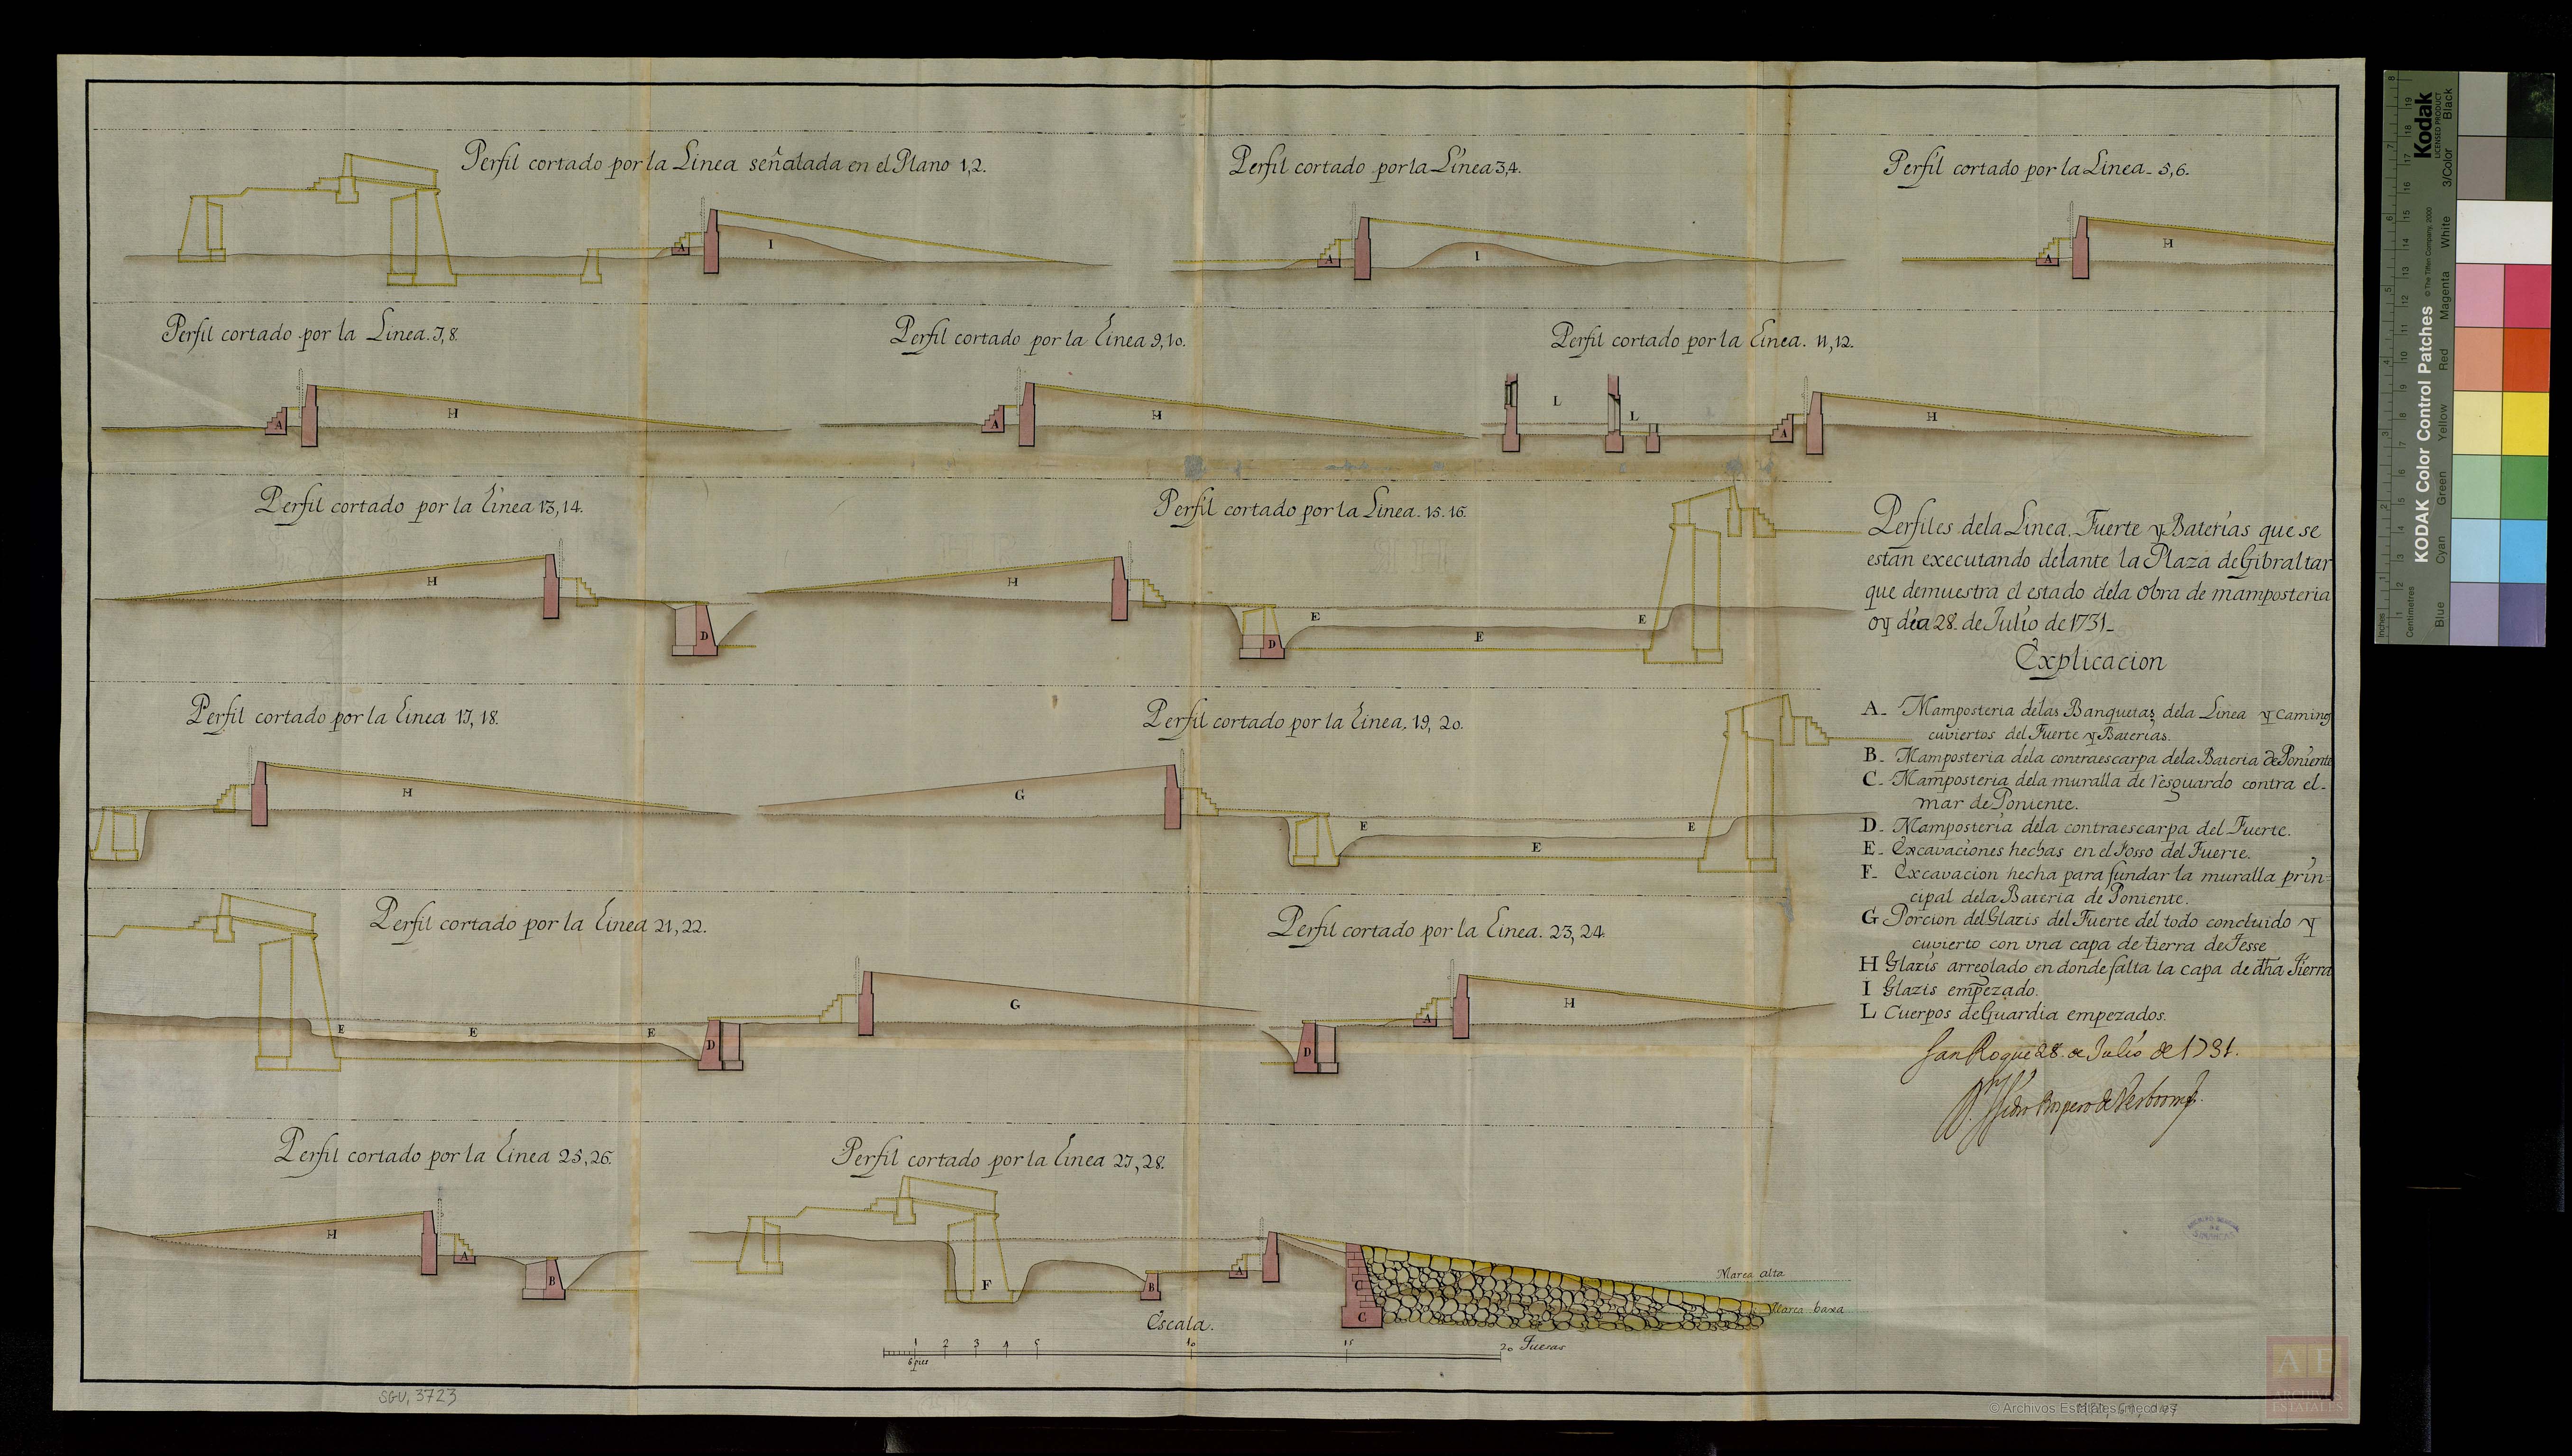 Perfil cortado por la Linea señalada en el Plano 1,2.
Perfil cortado por la Linea 3,4.
Perfil cortado por la Linea. 5,6.
A
I
A
I
A
H
Perfil cortado por la Linea. 7,8.
Perfil cortado por la Linea 9,10.
Perfil cortado por la Linea. 11,12.
A
H
A
H
L
L
A
H
Perfil cortado por la Linea 13,14.
Perfil cortado por la Linea. 15.16.
H
D
H
D
E
E
E
Perfiles dela Linea, Fuerte y Baterias que se
estàn executando delante la Plaza de Gibraltar
que demuestra el estado dela obra de mamposteria
oy dia 28. de Julio de 1731_
Explicacion
A_ Mamposteria delas Banquetas dela Linea y camino
cuviertos del Fuerte y Baterias.
B_ Mamposteria dela contraescarpa dela Bateria de Poniente
C_ Mamposteria dela muralla de resguardo contra el_
mar de Poniente.
D_ Mamposteria dela contraescarpa del Fuerte.
E_ Excavaciones hechas en el fosso del Fuerte.
F_ Excavacion hecha para fundar la muralla prin=
cipal dela Bateria de Poniente.
G Porcion del Glazis del Fuerte del todo concluido y
cuvierto con vna capa de tierra de Fesse
H Glazis arreglado en donde falta la capa de dha Tierra
I Glazis empezado.
L Cuerpos de Guardia empezados.
San Roque 28. de Julio de 1731.
Dn. Isidro Prospero de Verboom
Perfil cortado por la Linea 17,18.
Perfil cortado por la Linea. 19, 20.
H
G
E
E
E
Perfil cortado por la Linea 21,22.
Perfil cortado por la Linea. 23,24.
E
E
E
D
G
D
A
H
Perfil cortado por la Linea 25,26.
Perfil cortado por la Linea 27,28.
H
A
B
F
B
A
C
C
Marea alta
Marea baxa
Escala.
1 2 3 4 5 10 15 20 Tuesas
6 pies
SGU, 3723
© Archivos Estatales, mecd.es
AE
ARCHIVOS
ESTATALES
Kodak
LICENSED PRODUCT
KODAK Color Control Patches
© The Tiffen Company, 2000
Inches
Centimetres
Blue
Cyan
Green
Yellow
Red
Magenta
White
3/Color
Black